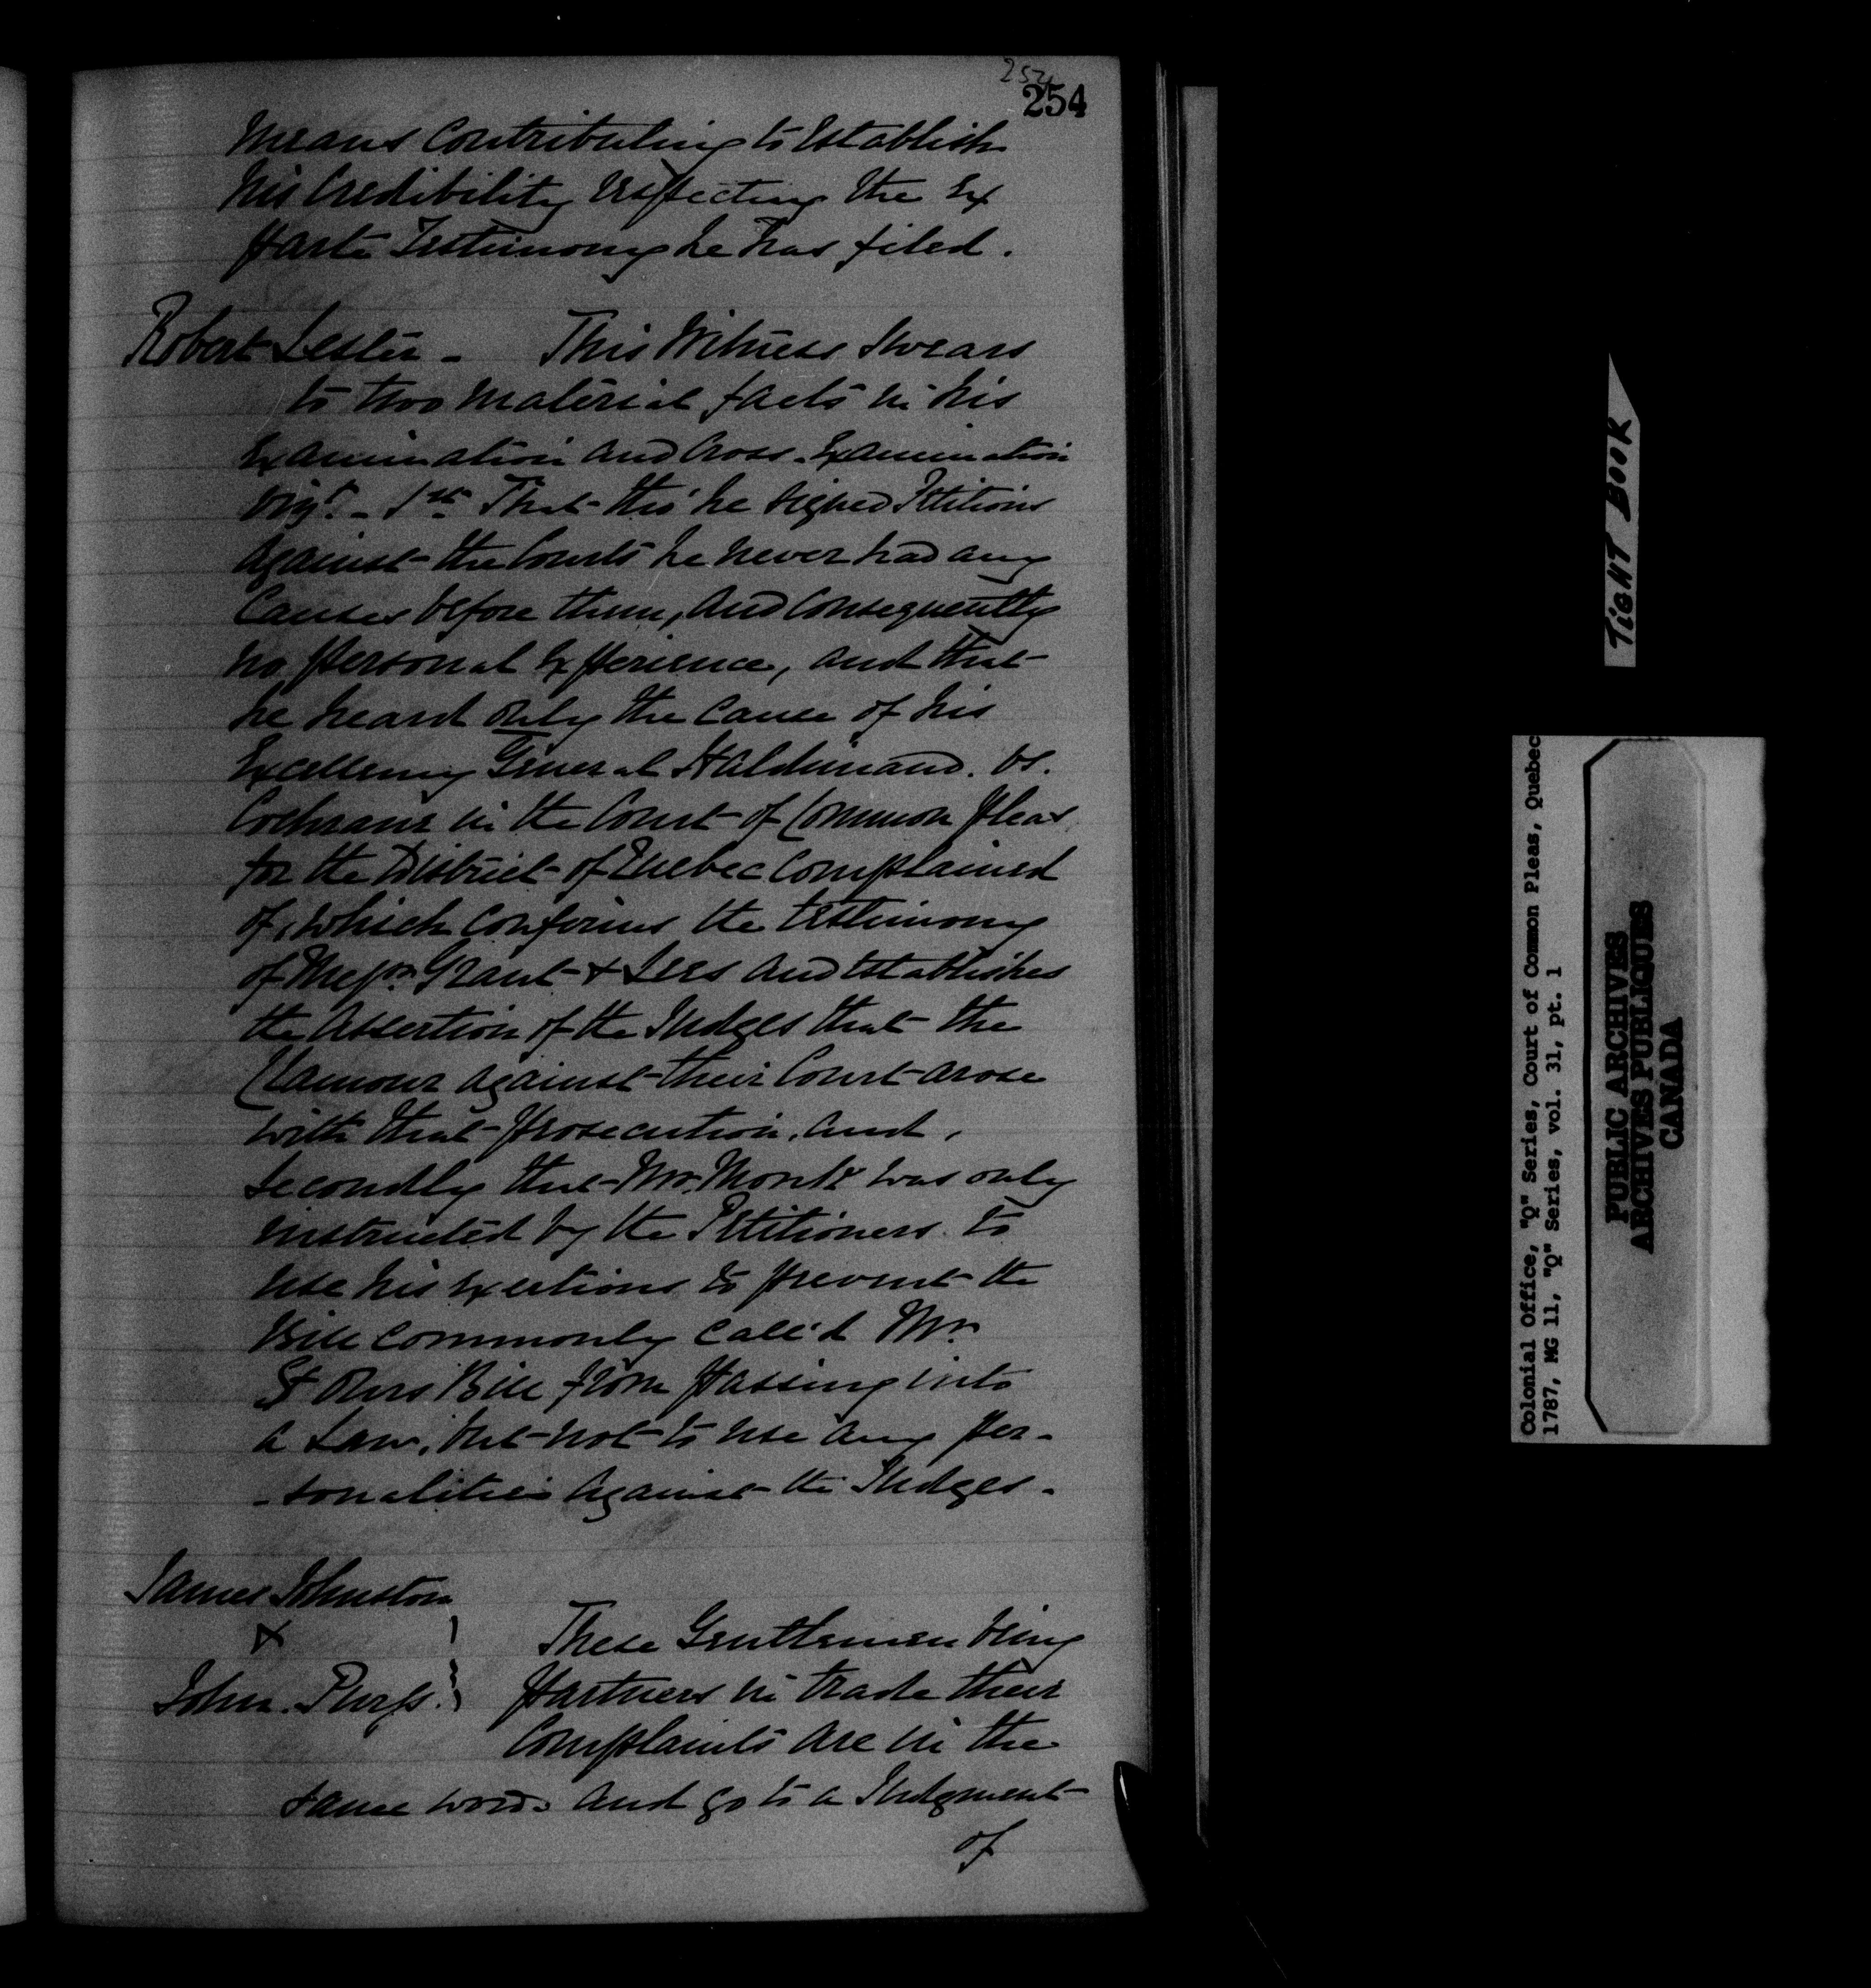 254
254
means Contributing to Establish
his Credibility respecting the Ex
parte Testimony he has filed.
Robert Lester - This Witness Swears
to two material facts in his
Examination and Cross-Examination
vizt. - 1st. That tho' he signed Petitions
against the Courts he never had any
Causes before them, and Consequently
no personal Experience, and that
he heard only the cause of his
Excellency General Haldimand. vs.
Cochrane in the Court of Common Pleas
for the District of Quebec Complained
of, which Confirms the testimony
of Messrs. Grant & Lees and Establishes
the Assertion of the Judges that the
Clamour against their Court arose
with that prosecution, and,
Secondly that Mr. Monk was only
instructed by the Petitioners to
use his Exertions to prevent the
Bill commonly call'd Mr.
St Ours Bill from passing into
a Law, but not to use any per-
-sonalities against the Judges.
James Johnston
&
John Purss.
These Gentlemen being
partners in trade their
Complaints are in the
same words and go to a Judgment
of
TIGHT BOOK
Colonial Office, "Q" Series, Court of Common Pleas, Quebec
1787, MG 11, "Q" Series, vol. 31, pt. 1
PUBLIC ARCHIVES
ARCHIVES PUBLIQUES
CANADA